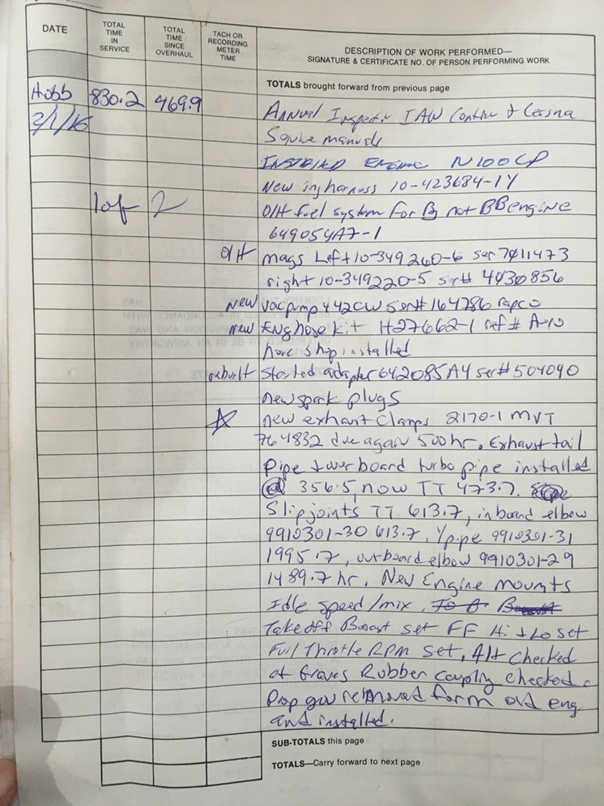 DATE
TOTAL TIME IN SERVICE
TOTAL TIME SINCE OVERHAUL
TACH OR RECORDING METER TIME
DESCRIPTION OF WORK PERFORMED—
SIGNATURE & CERTIFICATE NO. OF PERSON PERFORMING WORK
TOTALS brought forward from previous page
Hobb 830.2 469.9 Annual Inspection IAW Contin + Cessna
3/1/16 Service manuals
INSTALLED ENGINE N100CP
New ing harness 10-423684-14
1 of 2 O/H fuel system for B not BB engine
649054A7-1
O/H mags Left 10-349260-6 ser 7011473
right 10-349220-5 ser# 4030856
new vac pump 442CW ser# 164786 rapco
new Eng hose kit H27662-1 ref#
hose shop installed
rebuilt Started adapter 642085A4 ser# 504090
new spark plugs
☆ new exhaust clamps 2170-1 MVT
764832 due again 500 hr. Exhaust tail
pipe + overboard turbo pipe installed
@ 356.5, now TT 473.7.
Slip joints TT 613.7, inboard elbow
9910301-30 613.7, Y pipe 9910301-31
1995.7, outboard elbow 9910301-29
1489.7 hr. New Engine mounts
Idle speed/mix,
Takeoff Boost set FF Hi + Lo set
Full Throttle RPM set, Alt checked
at Graves Rubber coupling checked.
Prop gov removed form old eng
and installed.
SUB-TOTALS this page
TOTALS—Carry forward to next page